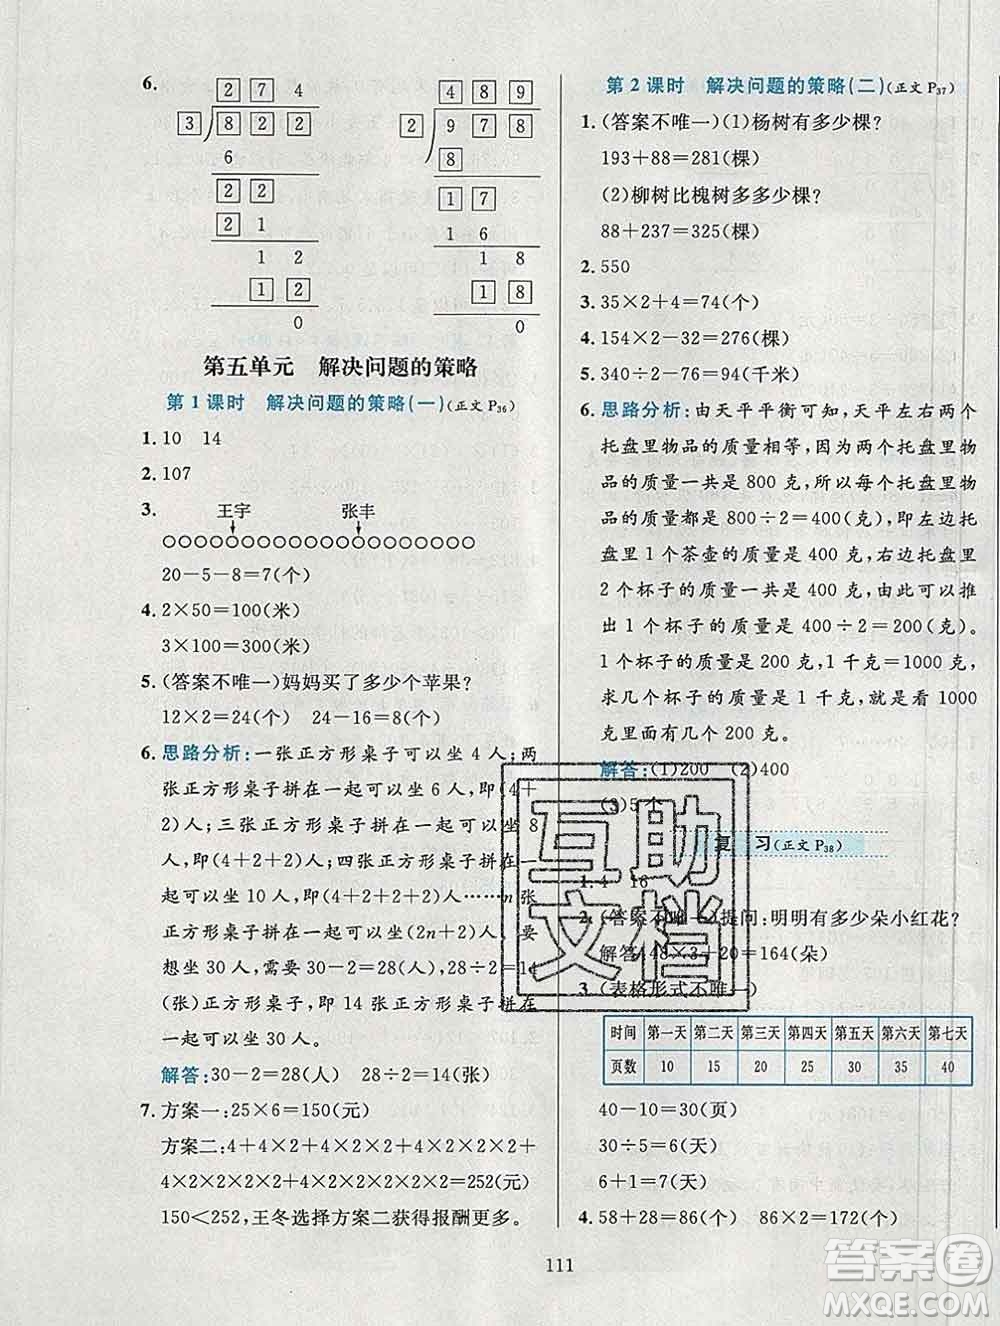 6.
274
3 822
6
22
21
12
12
0
489
2 978
8
17
16
18
18
0
第五单元 解决问题的策略
第1课时 解决问题的策略(一)(正文P36)
1. 10 14
2. 107
3.
王宇 张丰
○○○○○○○○○○○○○○○○○○○○
20-5-8=7(个)
4. 2×50=100(米)
3×100=300(米)
5. (答案不唯一)妈妈买了多少个苹果?
12×2=24(个) 24-16=8(个)
6. 思路分析:一张正方形桌子可以坐4人;两
张正方形桌子拼在一起可以坐6人,即(4+
2)人;三张正方形桌子拼在一起可以坐8
人,即(4+2+2)人;四张正方形桌子拼在一
起可以坐10人,即(4+2+2+2)人……n张
正方形桌子拼在一起可以坐(2n+2)人。要
想坐30人,需要正方形桌子(30-2)÷2=14
(张)正方形桌子,即14张正方形桌子拼在一
起可以坐30人。
解答:30-2=28(人) 28÷2=14(张)
7. 方案一:25×6=150(元)
方案二:4+4×2+4×2×2+4×2×2×2+
4×2×2×2×2+4×2×2×2×2×2=252(元)
150<252,王冬选择方案二获得报酬更多。
第2课时 解决问题的策略(二)(正文P37)
1. (答案不唯一)(1)杨树有多少棵?
193+88=281(棵)
(2)柳树比槐树多多少棵?
88+237=325(棵)
2. 550
3. 35×2+4=74(个)
4. 154×2-32=276(棵)
5. 340÷2-76=94(千米)
6. 思路分析:由天平平衡可知,天平左右两个
托盘里物品的质量相等,因为两个托盘里物
品的质量一共是800克,所以每个托盘里物品
的质量都是800÷2=400(克),即左边托
盘里1个茶壶的质量是400克,右边托盘里
2个杯子的质量一共是400克,由此可以推
出1个杯子的质量是400÷2=200(克)。
1个杯子的质量是200克,1千克=1000克,
求几个杯子的质量是1千克,就是看1000
克里面有几个200克。
解答:(1)200 (2)400
(3)5个
复 习(正文P38)
1. 4 16
2. (答案不唯一)提问:明明有多少朵小红花?
解答:48×3+20=164(朵)
3. (表格形式不唯一)
时间 第一天 第二天 第三天 第四天 第五天 第六天 第七天
页数 10 15 20 25 30 35 40
40-10=30(页)
30÷5=6(天)
6+1=7(天)
4. 58+28=86(个) 86×2=172(个)
111
互助
文档
答案圈
MXQE.COM